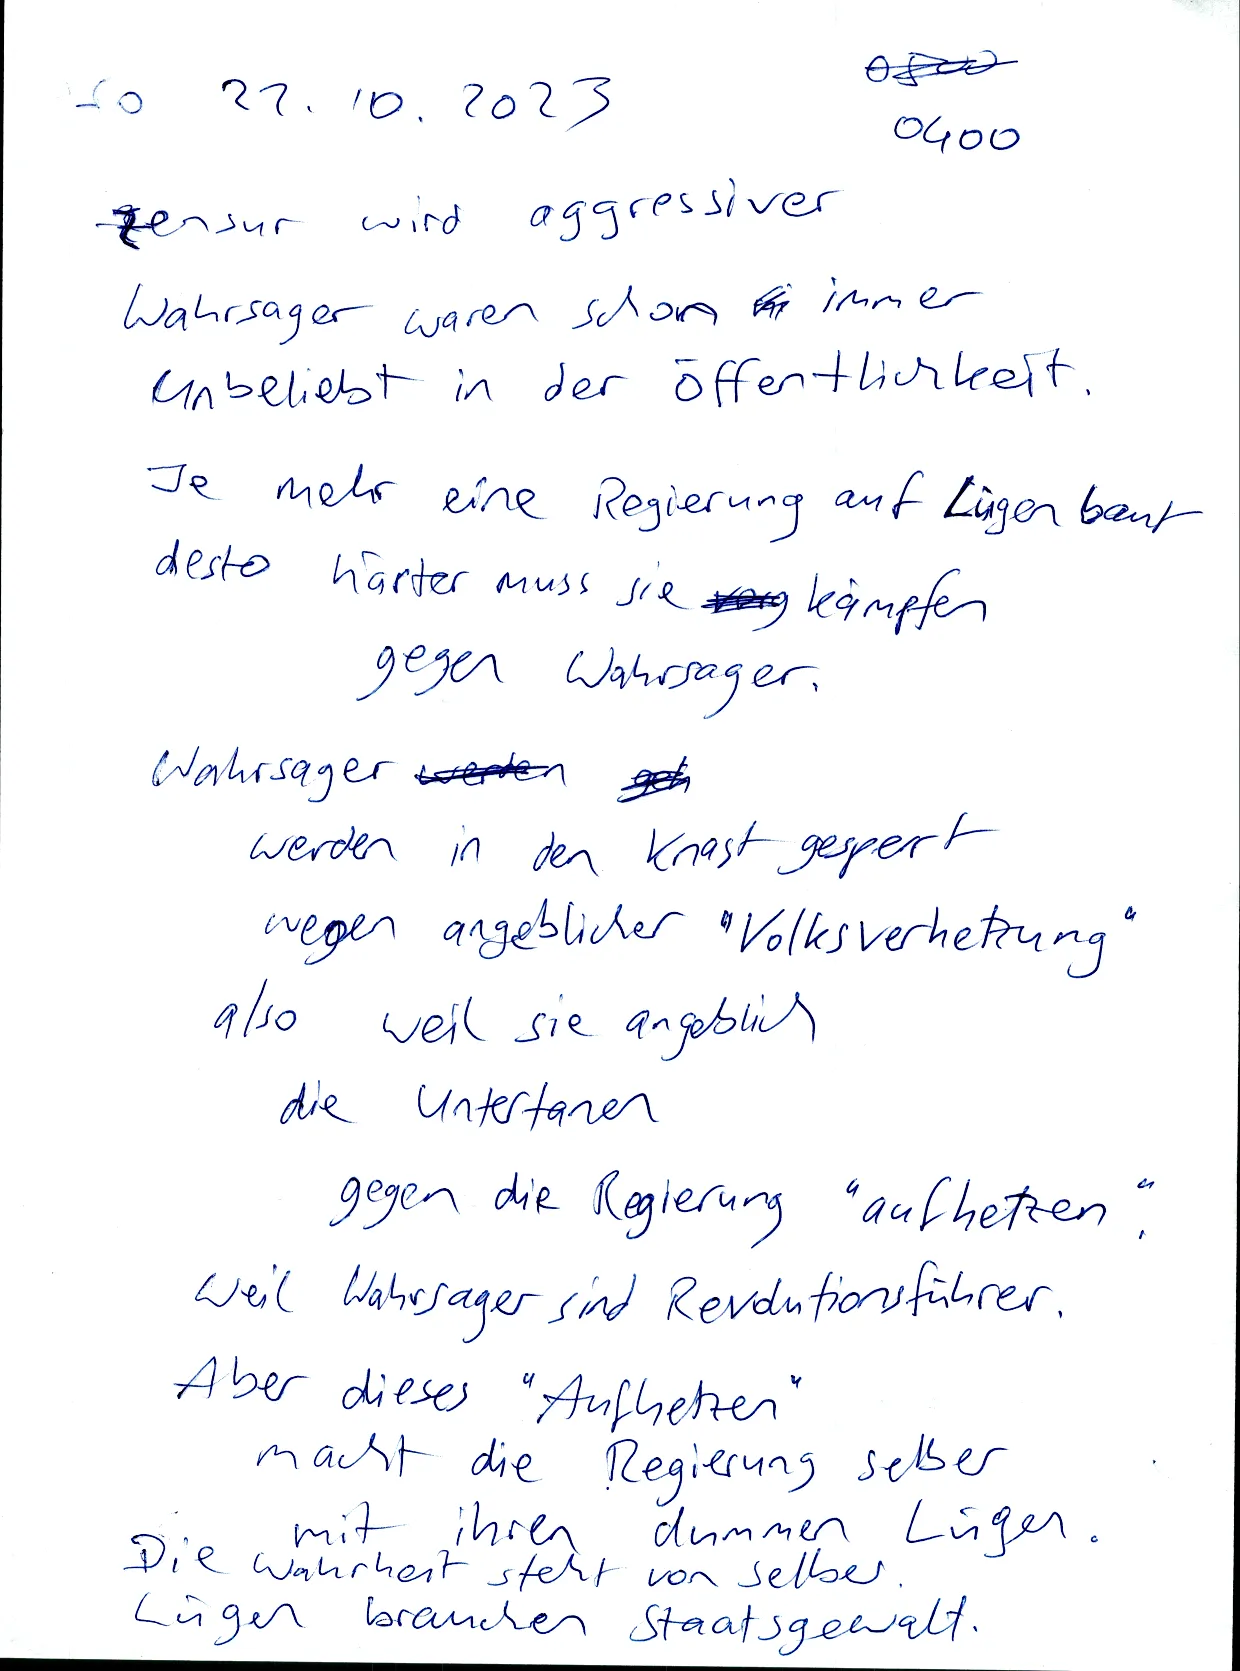 So 22.10.2023
0400
Zensur wird aggressiver
Wahrsager waren schon immer
unbeliebt in der Öffentlichkeit.
Je mehr eine Regierung auf Lügen baut
desto härter muss sie kämpfen
gegen Wahrsager.
Wahrsager
werden in den Knast gesperrt
wegen angeblicher "Volksverhetzung"
also weil sie angeblich
die Untertanen
gegen die Regierung "aufhetzen".
Weil Wahrsager sind Revolutionsführer.
Aber dieses "Aufhetzen"
macht die Regierung selber
mit ihren dummen Lügen.
Die Wahrheit steht von selber.
Lügen brauchen Staatsgewalt.